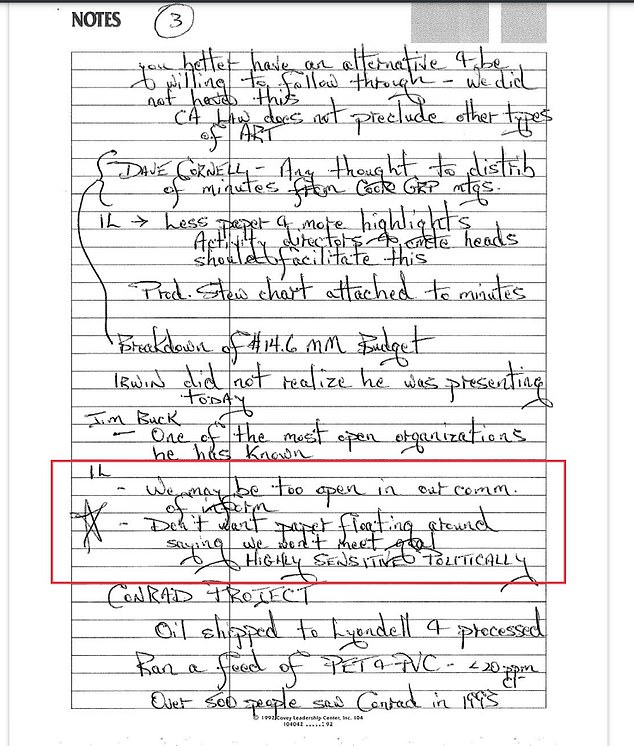 NOTES 3
you better have an alternative & be
willing to follow through - we did
not have this
CA Law does not preclude other types
of ART
DAVE CORNELL - Any thought to distrib
of minutes from Coor GRP mtgs.
IL → Less paper & more highlights
Activity directors & cmte heads
should facilitate this
Prod. Stew chart attached to minutes
Breakdown of $14.6 MM Budget
IRWIN did not realize he was presenting
TODAY
Jim Buck
- One of the most open organizations
he has known
IL
- We may be too open in our comm.
of inform
- Don't want paper floating around
saying we won't meet goal
HIGHLY SENSITIVE POLITICALLY
CONRAD PROJECT
Oil shipped to Lyondell & processed
Ran a feed of PET & PVC - <20 ppm
Cl-
Over 500 people saw Conrad in 1993
© 1992 Covey Leadership Center, Inc. 104
104042